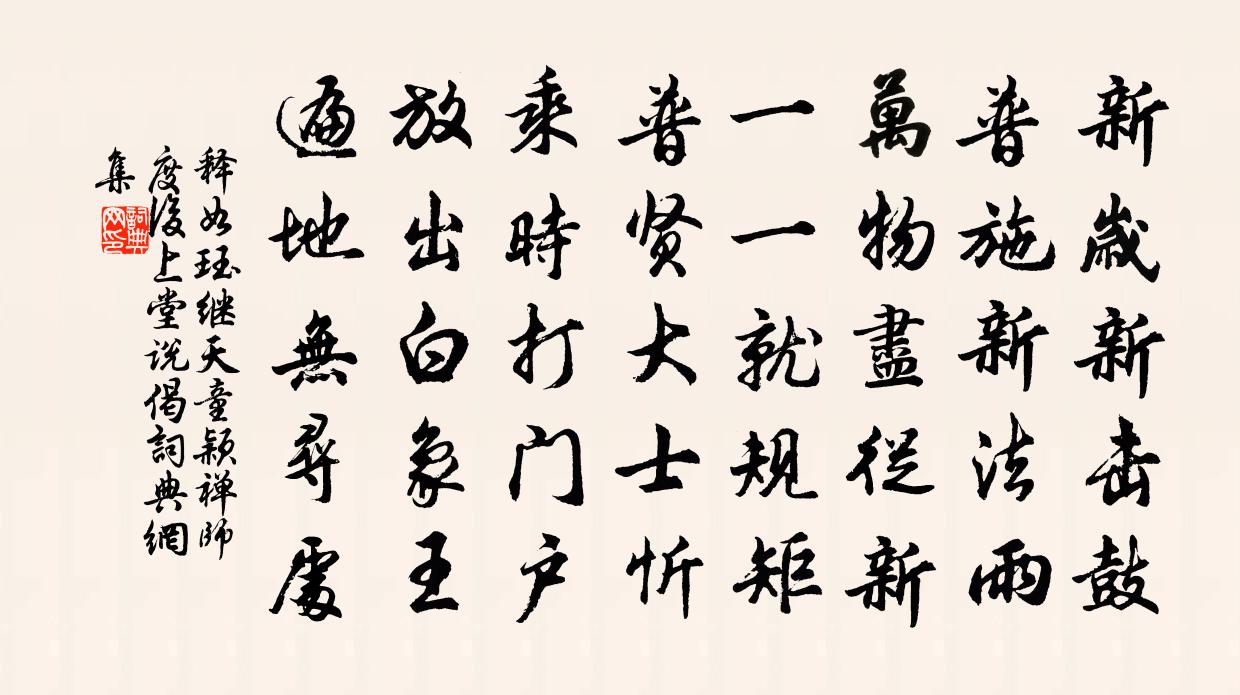 新歲新击鼓
普施新法雨
萬物盡從新
一一就規矩
普贤大士忻
乘時打门户
放出白象王
遍地無尋處
释如珏继天童颖禅师
度後上堂说偈詞典網
集
詞典
网印